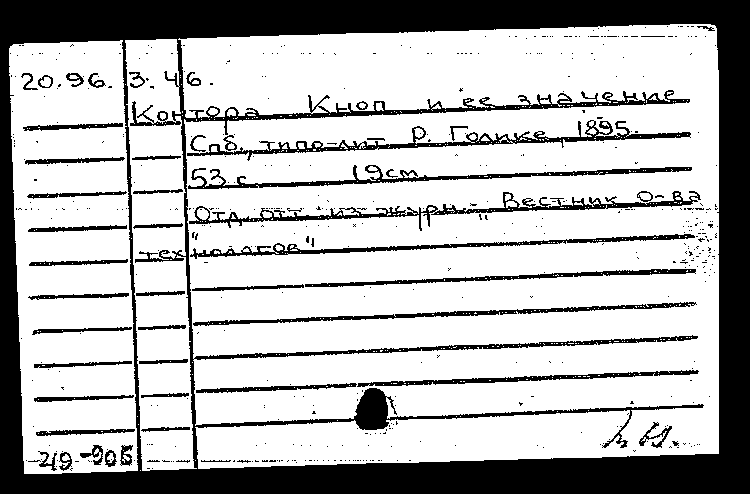 20.96.3.46.
Контора Кноп и ее значение
Спб., типо-лит Р. Голике, 1895.
53 с 19см.
Отд. отт. из журн.: „Вестник о-ва
технологов"
219-905